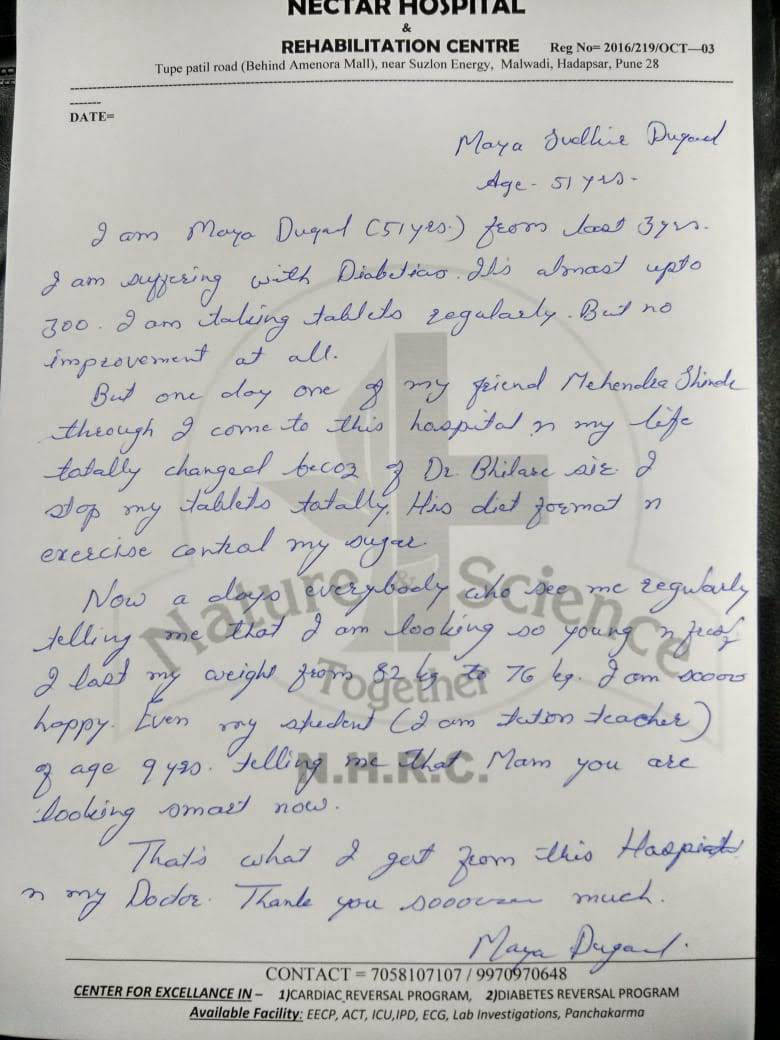 NECTAR HOSPITAL
&
REHABILITATION CENTRE Reg No= 2016/219/OCT—03
Tupe patil road (Behind Amenora Mall), near Suzlon Energy, Malwadi, Hadapsar, Pune 28
DATE=
Maya Sudhir Dugad
Age - 51 yrs.
I am Maya Dugad (51 yrs.) from last 3 yrs.
I am suffering with Diabeties. Its almost upto
300. I am taking tablets regularly. But no
improvement at all.
But one day one of my friend Mehendra Shinde
through I come to this hospital n my life
totally changed becoz of Dr Bhilare sir. I
stop my tablets totally. His diet format n
exercise control my sugar.
Now a days everybody who see me regularly
telling me that I am looking so young n
I last my weight from 82 kg to 76 kg. I am soooo
happy. Even my student (I am tution teacher)
of age 9 yrs. telling me that Mam you are
looking smart now.
That's what I get from this Hospital
n my Doctor. Thank you much.
Maya Dugad.
Nature & Science
Together
N.H.R.C.
CONTACT = 7058107107 / 9970970648
CENTER FOR EXCELLENCE IN – 1)CARDIAC REVERSAL PROGRAM, 2)DIABETES REVERSAL PROGRAM
Available Facility: EECP, ACT, ICU,IPD, ECG, Lab Investigations, Panchakarma